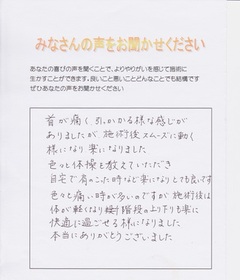 みなさんの声をお聞かせください
あなたの喜びの声を聞くことで、よりやりがいを感じて施術に
生かすことができます。良いこと悪いことどんなことでも結構です
ぜひあなたの声をお聞かせください
首が痛く引っかかる様な感じが
ありましたが 施術後スムーズに動く
様になり楽になりました
色々と体操も教えていただき
自宅で肩のこった時など楽になりとても良いです
色々と痛い時が多いのですが 施術後は
体が軽くなり 階段の上り下りも楽に
快適に過ごせる様になりました
本当にありがとうございました